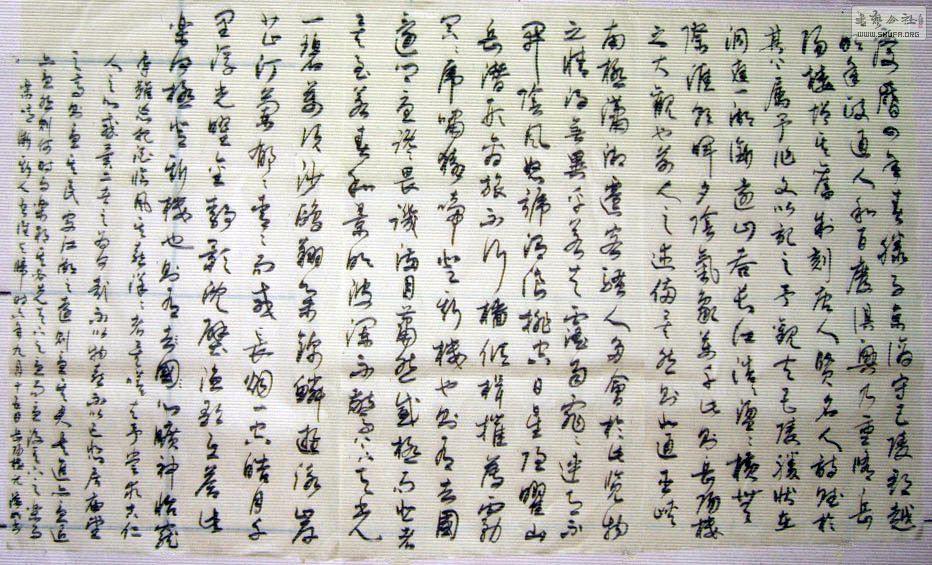 慶曆四年春滕子京謫守巴陵郡越
明年政通人和百廢俱興乃重修岳
陽樓增其舊制刻唐人賢名人詩賦於
其上屬予作文以記之予觀夫巴陵勝狀在
洞庭一湖銜遠山吞長江浩浩湯湯橫無
際涯朝暉夕陰氣象萬千此則岳陽樓
之大觀也前人之述備矣然則北通巫峽
南極瀟湘遷客騷人多會於此覽物
之情得無異乎若夫霪雨霏霏連月不
開陰風怒號濁浪排空日星隱曜山
岳潛形商旅不行檣傾楫摧薄暮
冥冥虎嘯猿啼登斯樓也則有去國
懷鄉憂讒畏譏滿目蕭然感極而悲者
矣至若春和景明波瀾不驚上下天光
一碧萬頃沙鷗翔集錦鱗游泳岸
芷汀蘭郁郁青青而或長煙一空皓月千
里浮光躍金靜影沉璧漁歌互答此
樂何極登斯樓也則有去國心曠神怡寵
辱皆忘把酒臨風其喜洋洋者矣嗟夫予嘗求古仁
人之心或異二者之為何哉不以物喜不以己悲居廟堂
之高則憂其民處江湖之遠則憂其君是進亦憂退
亦憂然則何時而樂耶其必曰先天下之憂而憂後天下之樂而
樂噫微斯人吾誰與歸時六年九月十五日岳陽樓
WWW.SHUFA.ORG